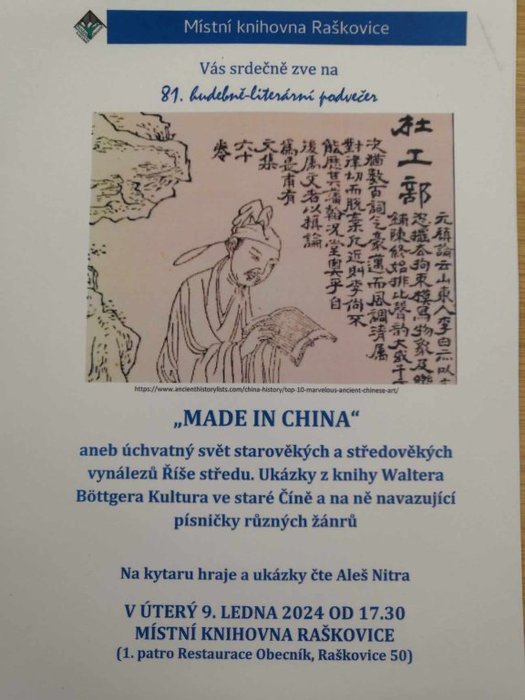 Místní knihovna Raškovice
Vás srdečně zve na
81. hudebně-literární podvečer
杜工部
元稹論云山東人李白亦以
恣擺去拘束模寫物象及樂
鋪陳終始排比聲韵大或千
次猶數百詞氣豪邁而風調清屬
對律切而脫棄凡近則李尚不
能歷其藩翰況堂奧乎自
後屬文者以稹論
為是甫有
文集
六十
卷
https://www.ancienthistorylists.com/china-history/top-10-marvelous-ancient-chinese-art/
„MADE IN CHINA“
aneb úchvatný svět starověkých a středověkých
vynálezů Říše středu. Ukázky z knihy Waltera
Böttgera Kultura ve staré Číně a na ně navazující
písničky různých žánrů
Na kytaru hraje a ukázky čte Aleš Nitra
V ÚTERÝ 9. LEDNA 2024 OD 17.30
MÍSTNÍ KNIHOVNA RAŠKOVICE
(1. patro Restaurace Obecník, Raškovice 50)